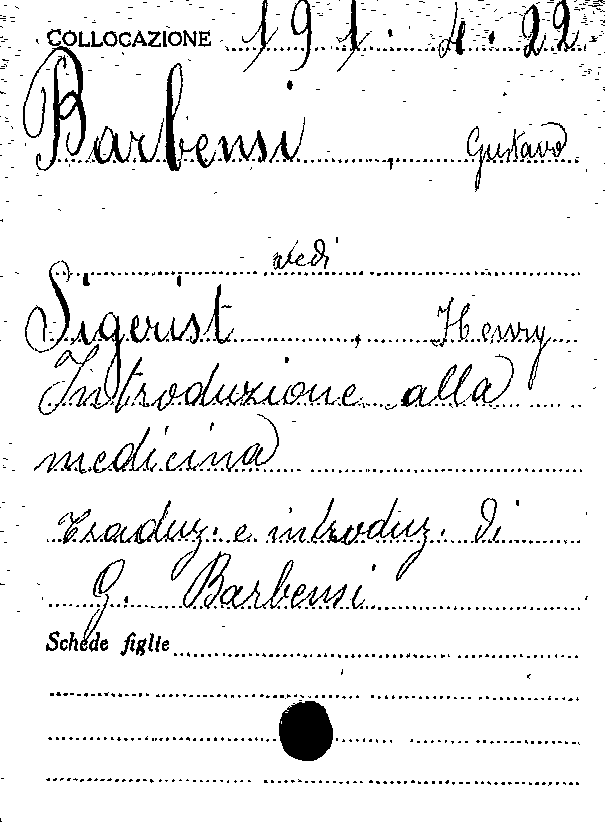 COLLOCAZIONE 191.4.22
Barbensi, Gustavo
vedi
Sigerist, Henry
Introduzione alla
medicina
Traduz. e introduz. di
G. Barbensi
Schede figlie